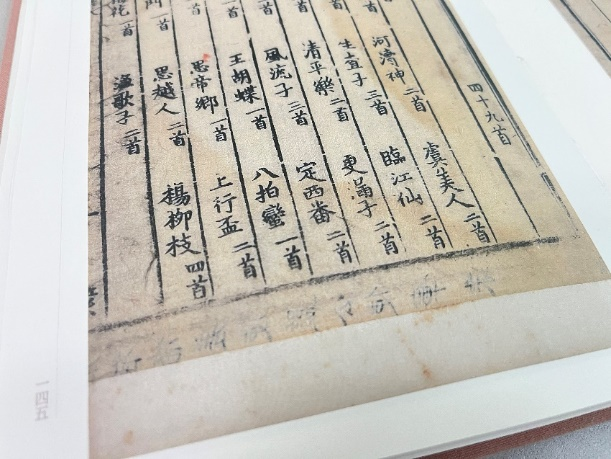 四十九首
虞美人二首
河瀆神二首 臨江仙二首
生查子三首 更漏子二首
清平樂二首 定西番二首
風流子三首 八拍蠻一首
玉胡蝶一首 上行盃二首
思帝鄉一首 楊柳枝四首
思越人二首
漁歌子二首
一四五